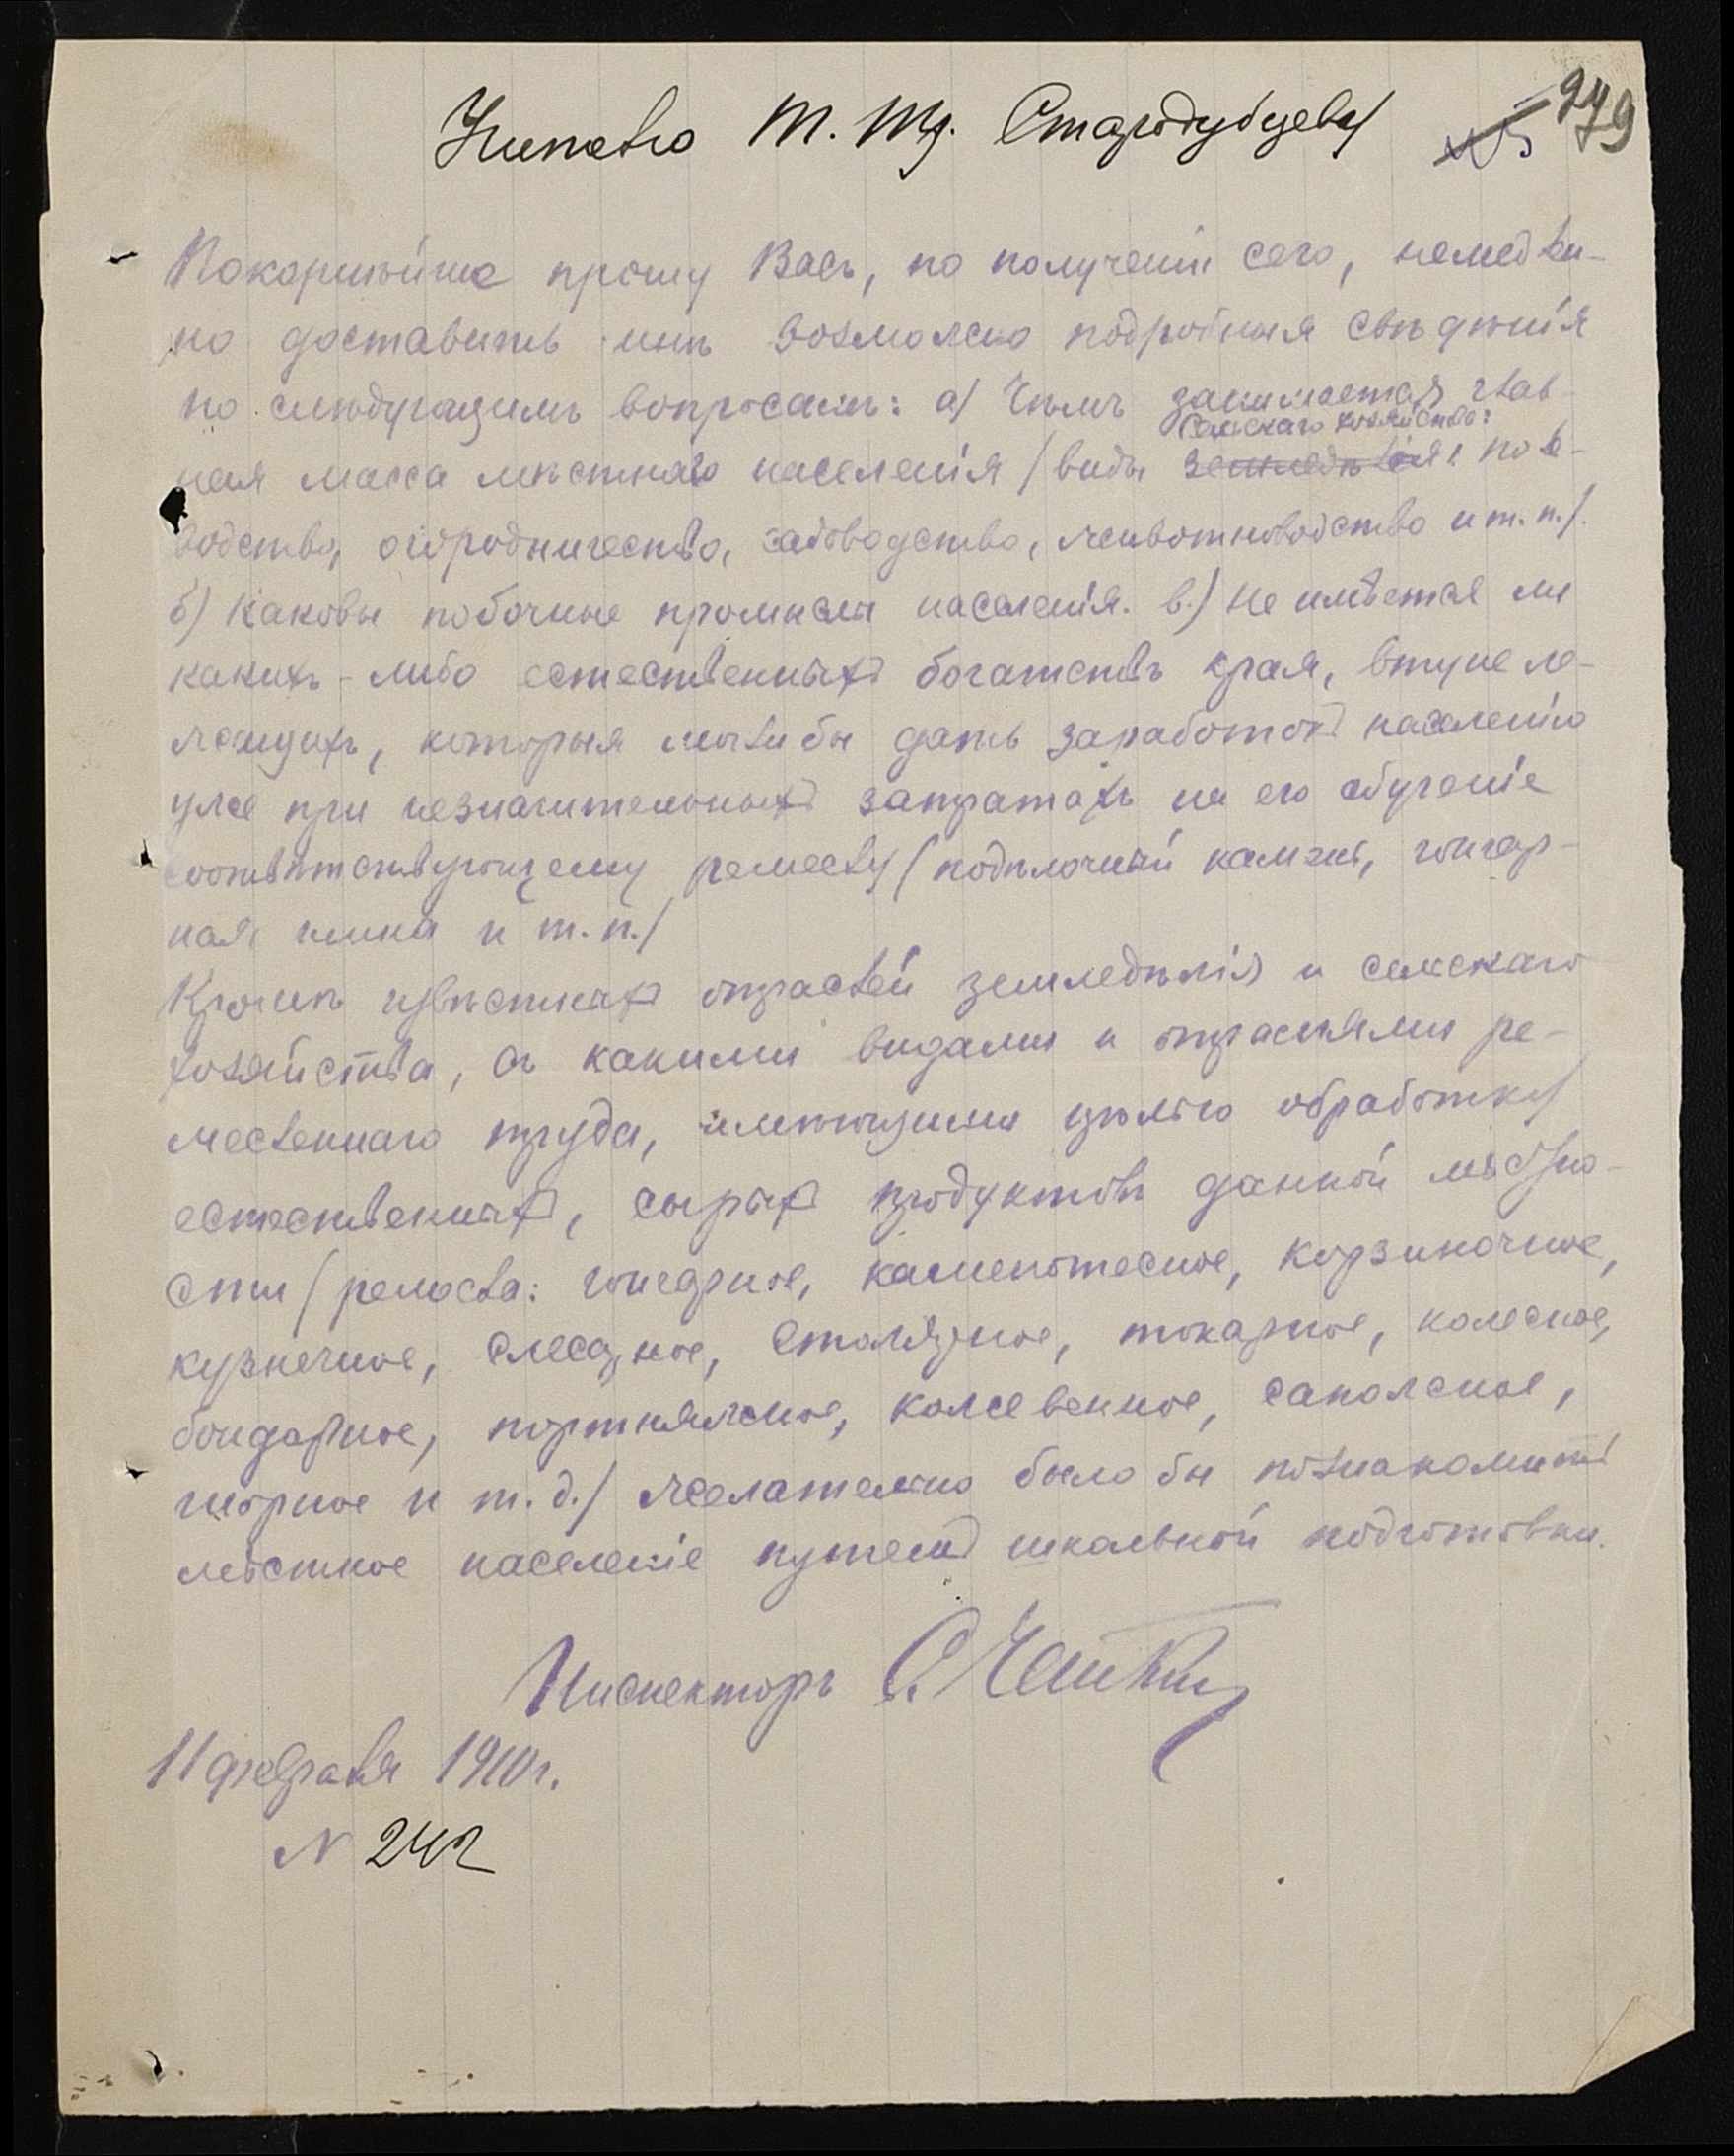 Т. Стародубцеву
279
Покорнѣйше прошу Васъ, по полученіи сего, немедлен-
но доставить мнѣ возможно подробныя свѣдѣнія
по слѣдующимъ вопросамъ: а) Чѣмъ занимается глав-
сельскаго хозяйства:
ная масса мѣстнаго населенія /виды земледѣлія: поле-
водство, огородничество, садоводство, животноводство и т. п./.
б) Каковы побочные промыслы населенія. в.) Не имѣется ли
какихъ-либо естественныхъ богатствъ края, втуне ле-
жащихъ, которыя могли бы дать заработокъ населенію
уже при незначительныхъ затратахъ на его обученіе
соотвѣтствующему ремеслу /подѣлочный камень, гончар-
ная глина и т. п./
Кромѣ извѣстныхъ отраслей земледѣлія и сельскаго
хозяйства, съ какими видами и отраслями ре-
месленнаго труда, имѣющими цѣлью обработку
естественныхъ, сырыхъ продуктовъ данной мѣстно-
сти /ремесла: гончарное, каменотесное, корзиночное,
кузнечное, слесарное, столярное, токарное, колесное,
бондарное, портняжное, кожевенное, сапожное,
шорное и т. д./ желательно было бы познакомить
мѣстное населеніе путемъ школьной подготовки.
Инспекторъ С.
11 февраля 1910 г.
N 242